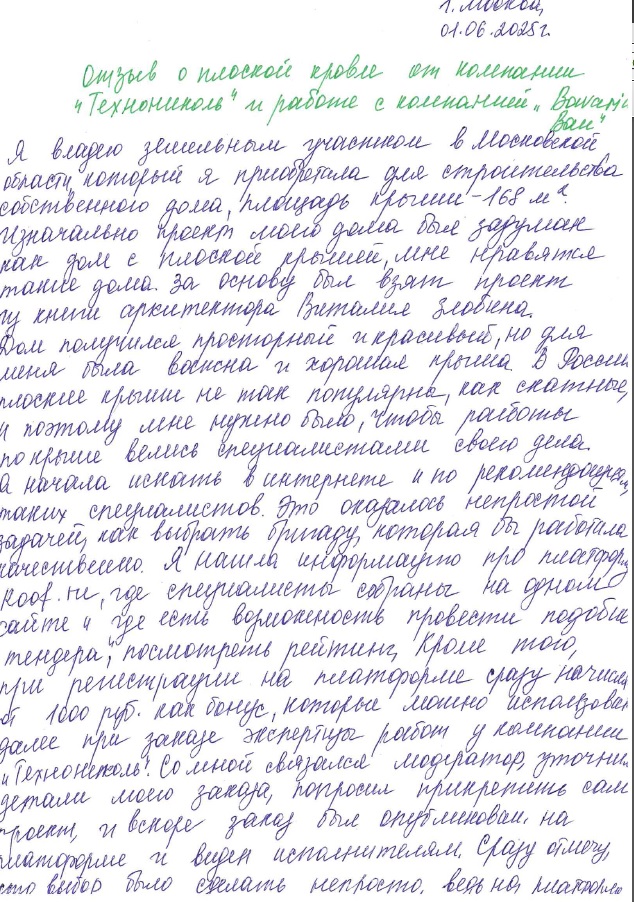 г. Москва,
01.06.2025г.
Отзыв о плоской кровле от компании
"Технониколь" и работе с компанией „Bavaria
Bau"
Я владею земельным участком в Московской
области, который я приобретала для строительства
собственного дома, площадь крыши - 168 м².
Изначально проект моего дома был задуман
как дом с плоской крышей, мне нравятся
такие дома. За основу был взят проект
из книги архитектора Виталия Злобина.
Дом получился просторный и красивый, но для
меня была важна и хорошая крыша. В России
плоские крыши не так популярны, как скатные,
и поэтому мне нужно было, чтобы работы
по крыше велись специалистами своего дела.
Я начала искать в интернете и по рекомендациям
таких специалистов. Это оказалось непростой
задачей, как выбрать бригаду, которая бы работала
качественно. Я нашла информацию про платформу
Roof.ru, где специалисты собраны на одном
сайте и где есть возможность провести подобие
"тендера", посмотреть рейтинг. Кроме того,
при регистрации на платформе сразу начисля
от 1000 руб. как бонус, которые можно использова
далее при заказе экспертизы работ у компании
"Технониколь". Со мной связался модератор, уточнил
детали моего заказа, попросил прикрепить сам
проект, и вскоре заказ был опубликован на
платформе и виден исполнителям. Сразу отмечу,
что выбор было сделать непросто, ведь на платформе